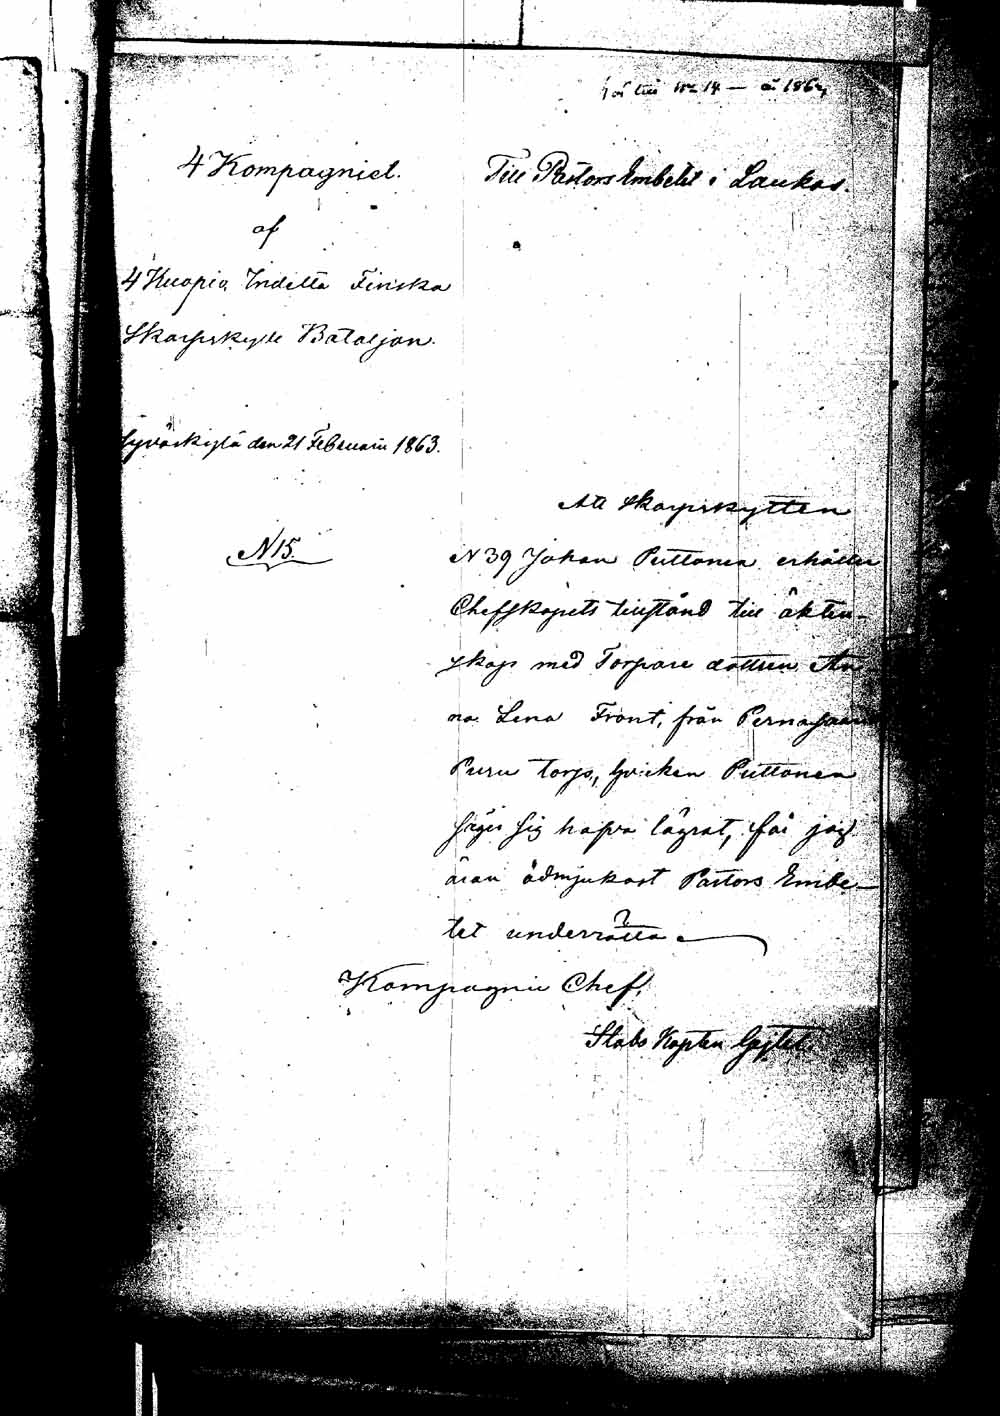 till No 14 — å 1862
4 Kompagniet.
Till Pastors Embetet i Laukas.
af
4 Kuopio Indelta Finska
Skarpskytte Bataljon.
Jyväskylä den 21 Februarii 1863.
Att Skarpskytten
N 15.
N 39 Johan Puttonen erhåller
Chefskapets tillstånd till äkten-
skap med Torpare dottren An
na Lena Front, från Pernasaari
Puru torp, hvilken Puttonen
säger sig hafva lägrat, får jag
äran ödmjukast Pastors Embe-
tet underrätta.
Kompagnie Chef,
Stabs Kapten